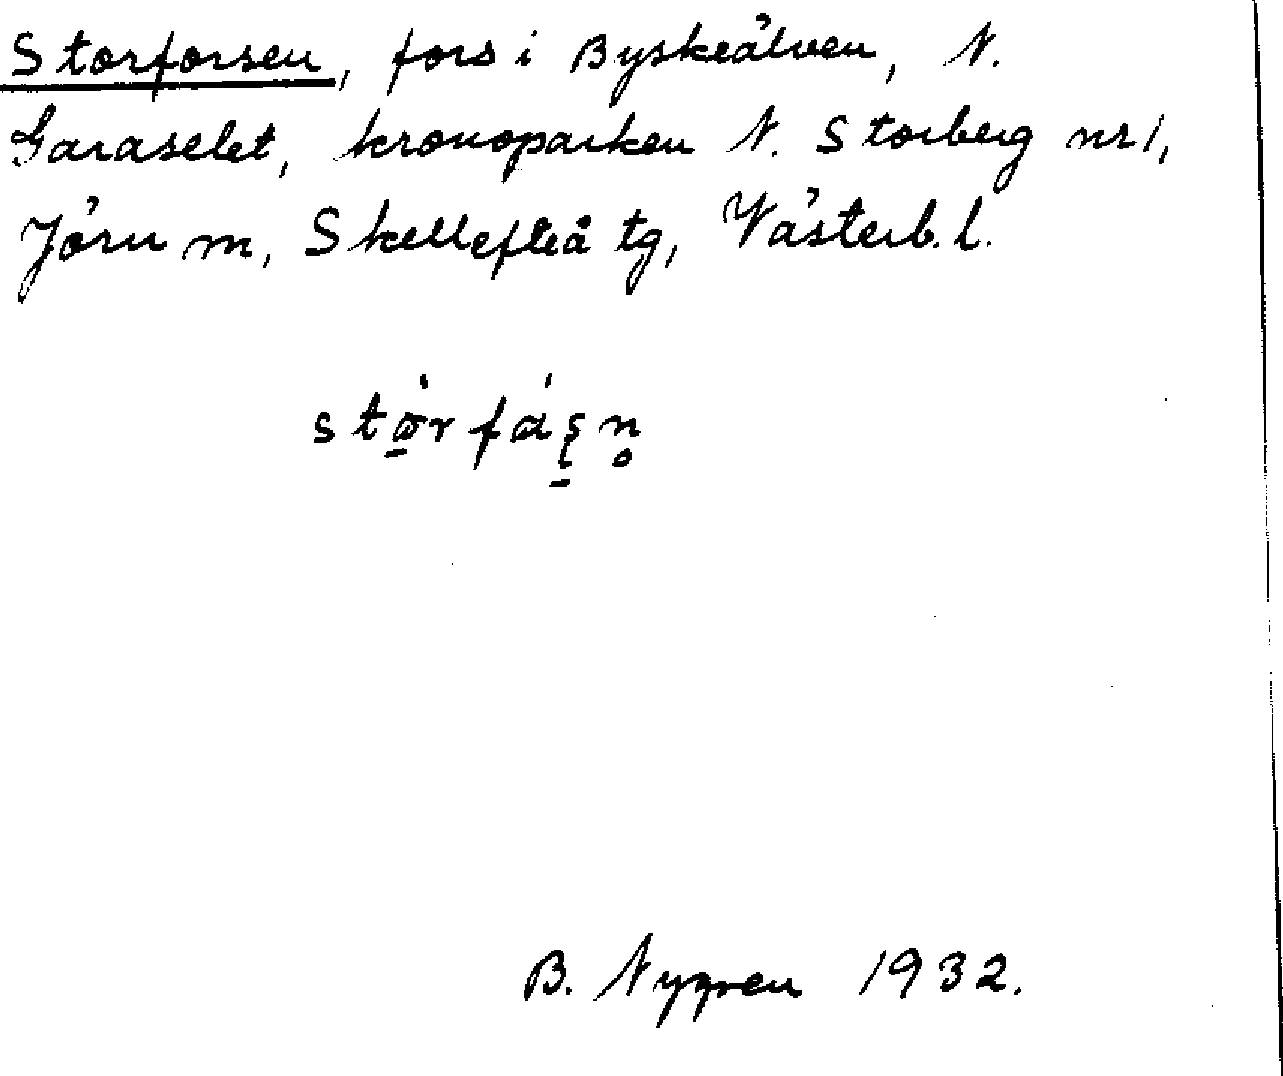 Storforsen, fors i Byskeälven, N.
Garaselet, kronoparken N. Storberg nr 1,
Jörn m, Skellefteå tg, Västerb. l.
B. Nygren 1932.